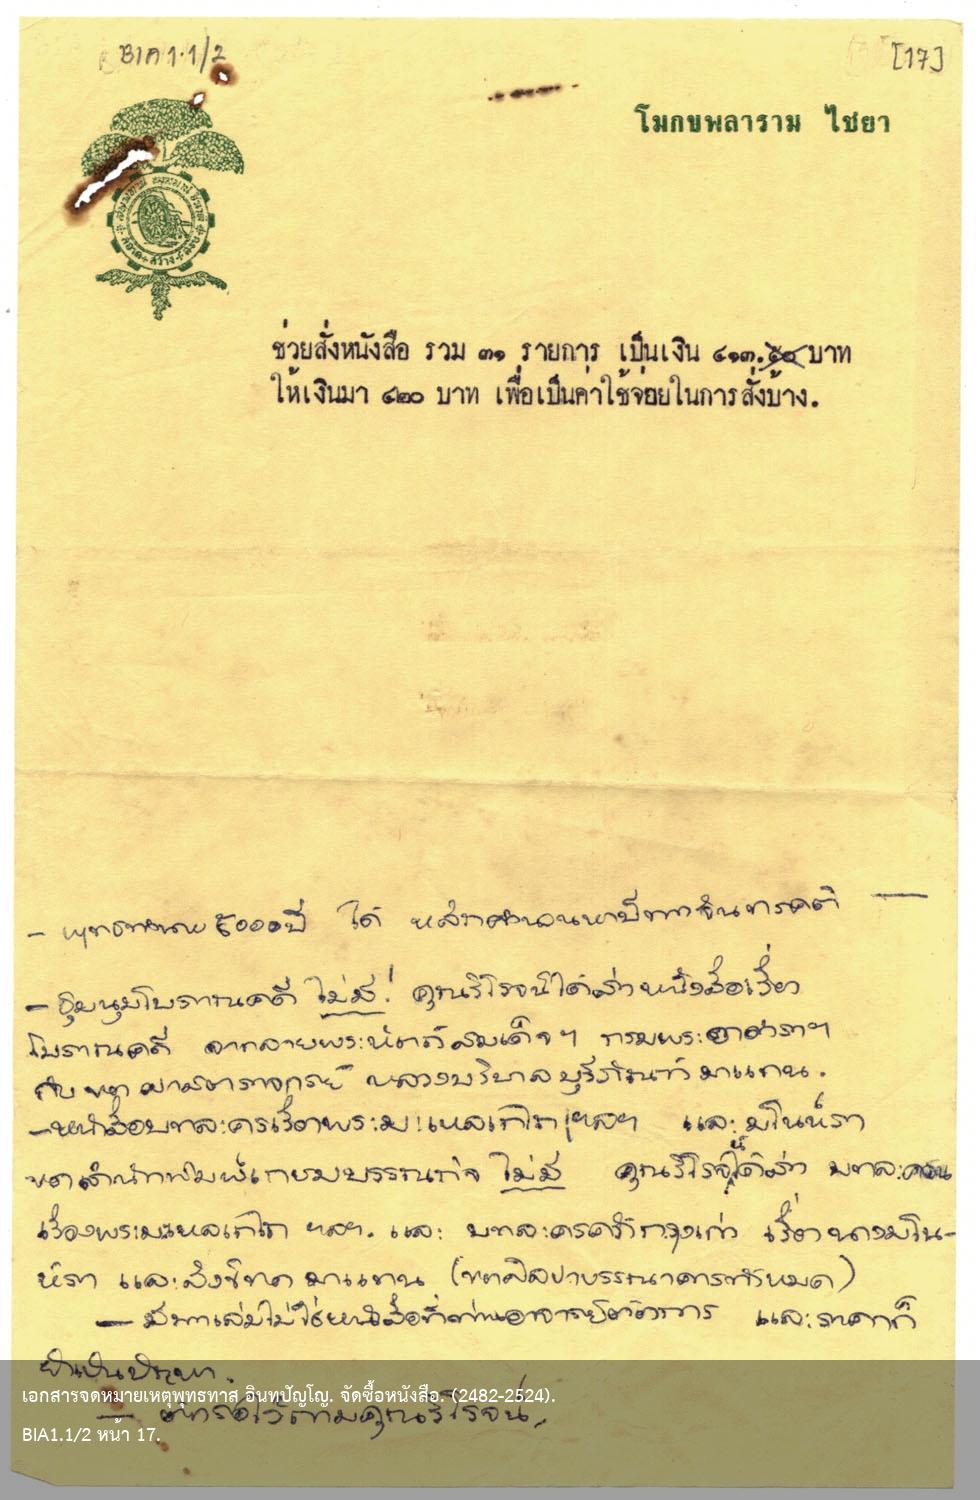 BIA 1.1/2
[17]
โมกขพลาราม ไชยา
ช่วยสั่งหนังสือ รวม ๓๑ รายการ เป็นเงิน ๔๑๓.๕๐ บาท
ให้เงินมา ๔๒๐ บาท เพื่อเป็นค่าใช้จ่ายในการสั่งบ้าง.
- พุทธทำนาย ๕๐๐๐ปี ได้
- ชุมนุมโบราณคดี ไม่มี! คุณวิโรจน์ได้ส่งหนังสือเรื่อง
โบราณคดี จากลายพระหัตถ์สมเด็จฯ กรมพระยาดำรงฯ
กับ ของ หลวงบริบาลบุรีภัณฑ์ มาแทน.
- หนังสือบทละครเรื่องพระมะเหลเถไถ ฯลฯ และ มโนห์รา
ของสำนักพิมพ์เกษมบรรณกิจ ไม่มี คุณวิโรจน์ได้ส่ง บทละคร
เรื่องพระมะเหลเถไถ ฯลฯ. และ บทละครครั้งกรุงเก่า เรื่องนางมโน-
ห์รา และสังข์ทอง มาแทน (ของศิลปาบรรณาคารทั้งหมด)
- บางเล่มไม่ใช่หนังสือที่ท่านอาจารย์ต้องการ และราคาก็
ยังเป็นปัญหา.
คุณวิโรจน์.
เอกสารจดหมายเหตุพุทธทาส อินทปัญโญ. จัดซื้อหนังสือ. (2482-2524).
BIA1.1/2 หน้า 17.